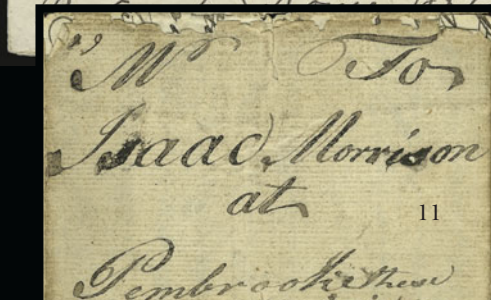 To
Mr
Isaac Morrison
at
11
Pembrooke these